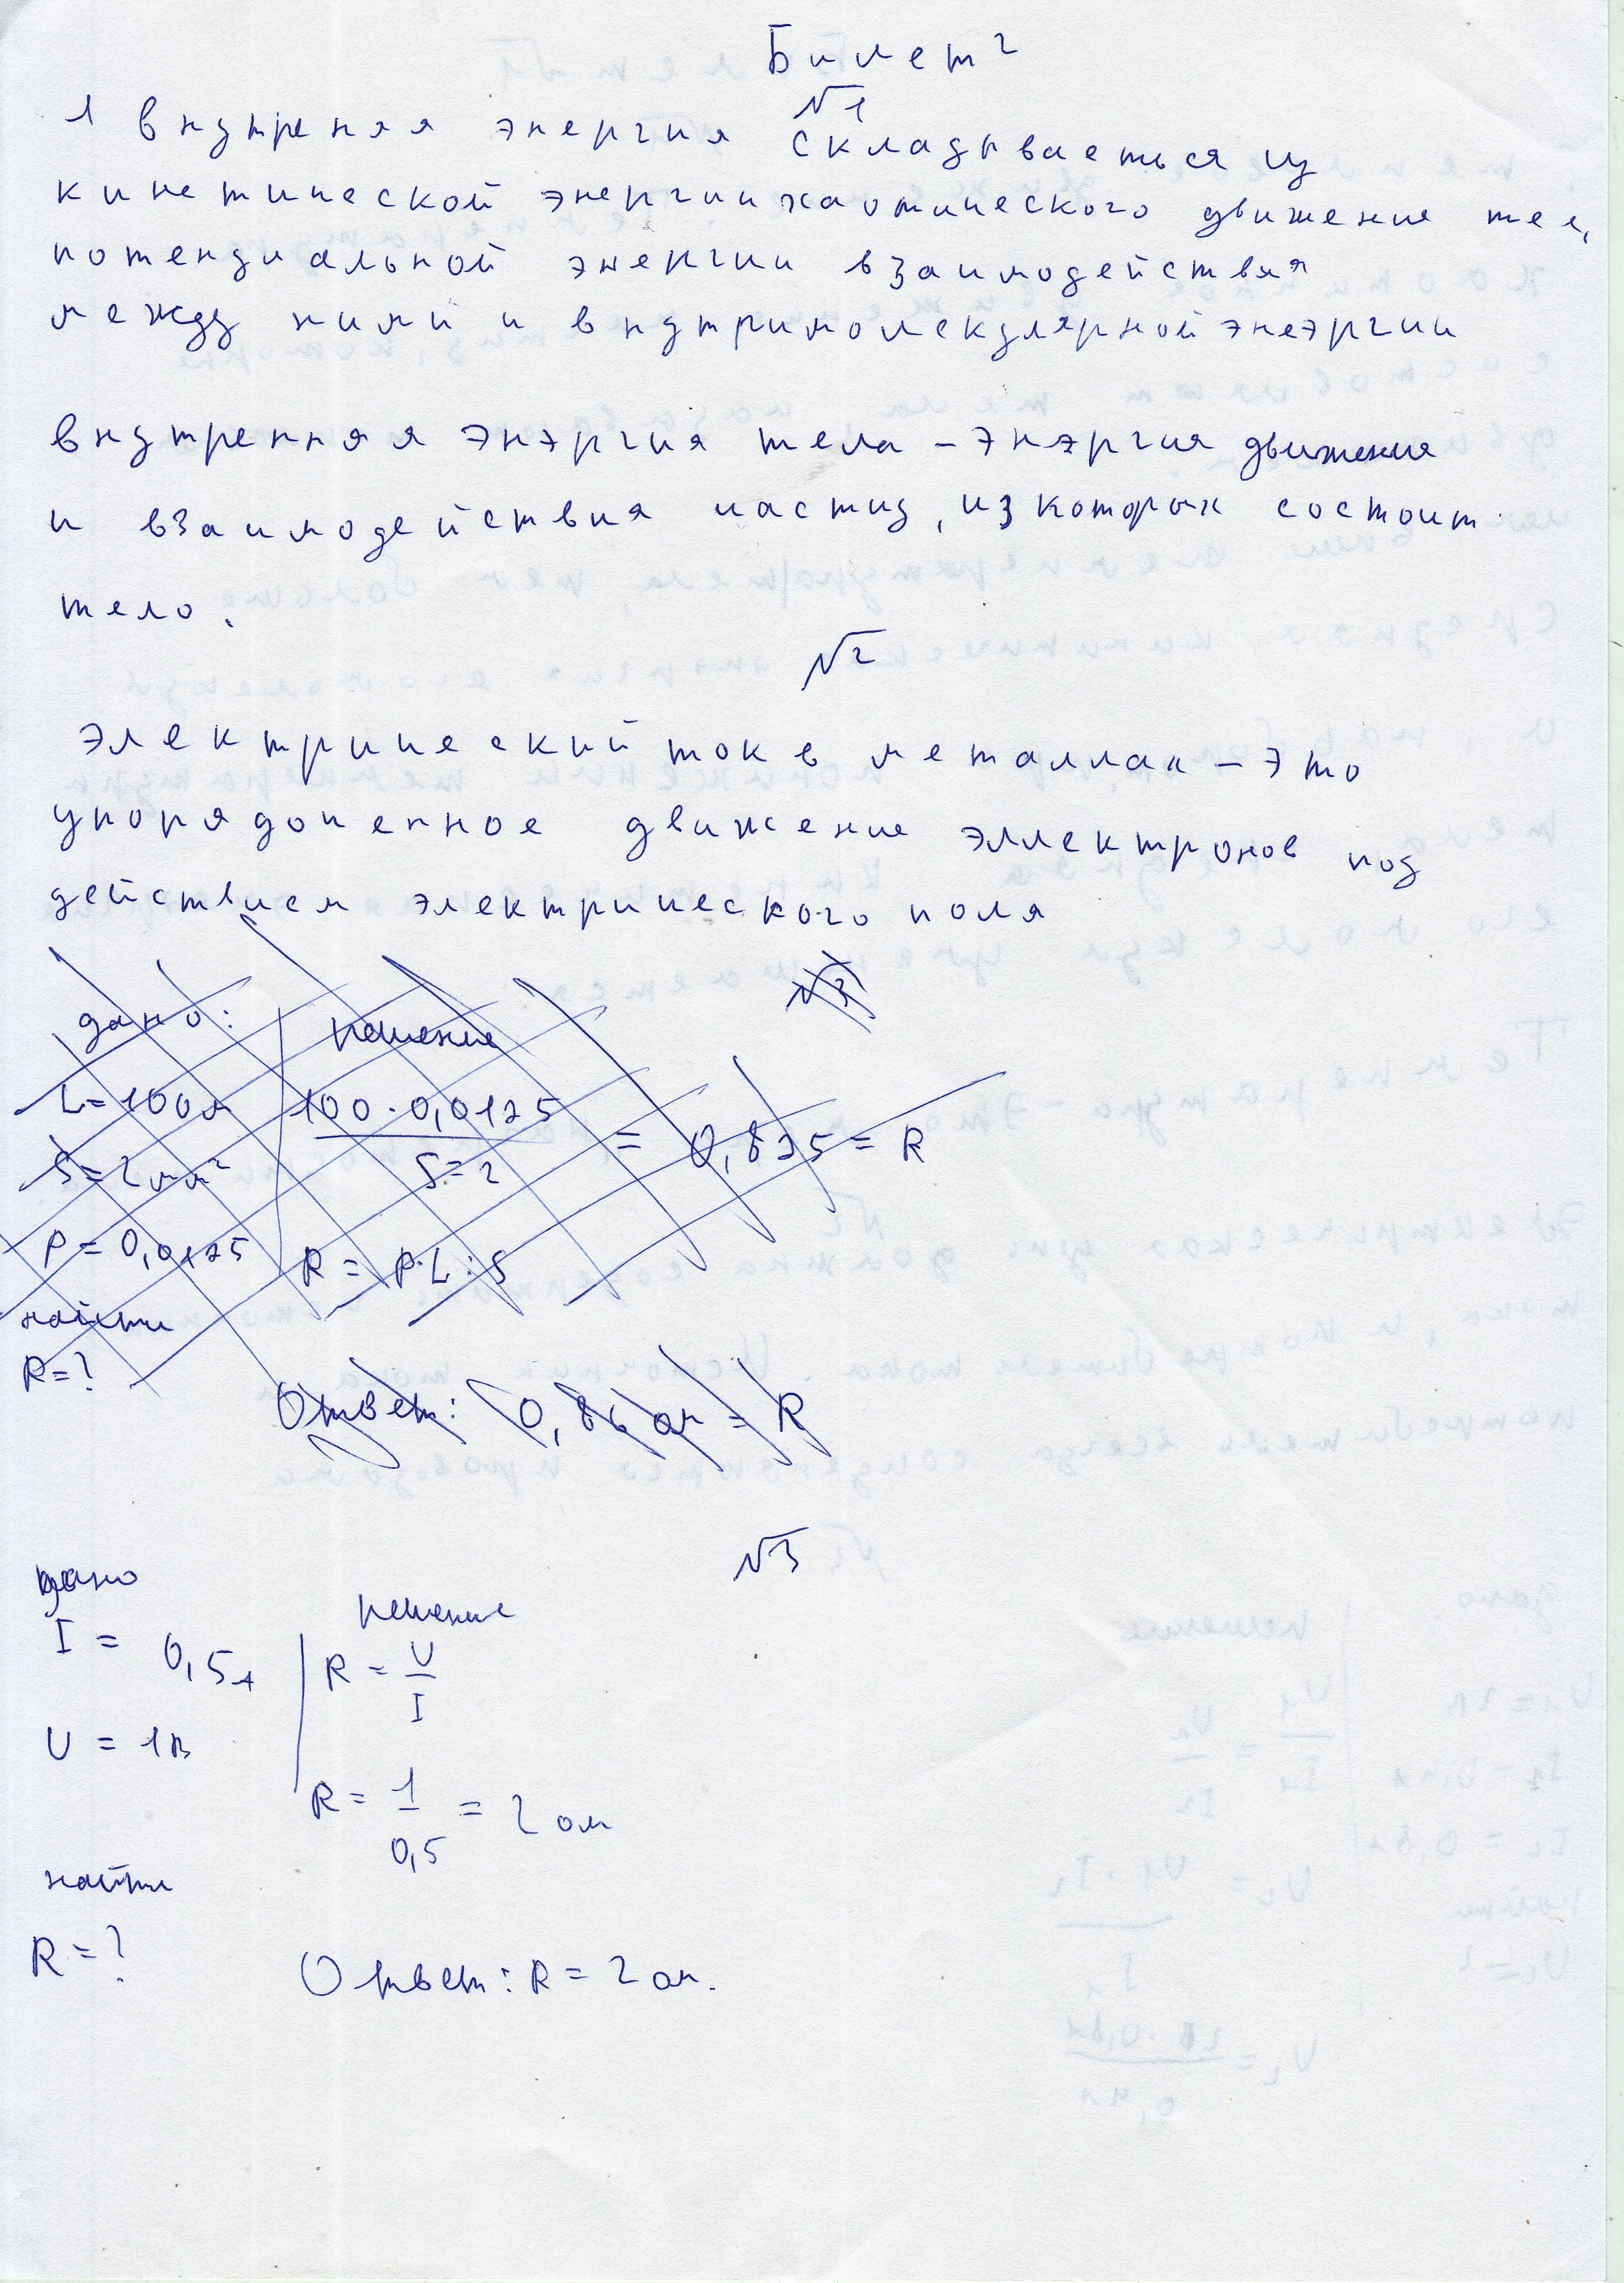 Билет 2
№1
1 внутреняя энергия складываеться из
кинетической энергии хаотического движения тел,
потендиальной энергии взаимодействия
между ними и внутримолекулярной энеэргии
внутренняя энэргия тела – энэргия движения
и взаимодействия частиц, из которых состоит
тело.
№2
электрический ток в металлах – это
упорядоченное движение эллектронов под
действием электрического поля
№3
дано:
решение
L = 100м
100 · 0,0175
S = 2
= 0,875 = R
S = 2 мм²
P = 0,0175
R = P · L : S
найти
R = ?
Ответ: 0,86 ом = R
№3
дано
решение
I = 0,5А
R = U/I
U = 1В
R = 1/0,5 = 2 ом
найти
R = ?
Ответ: R = 2 ом.